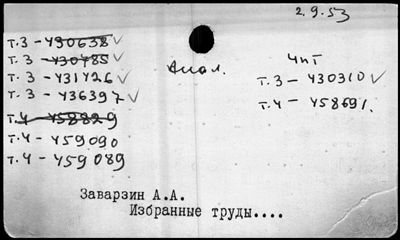 2.9.53
т.3 - У30638 ✓
т.3 - У30785 ✓
т.3 - У31426 ✓
т.3 - У36397 ✓
т.4 - У58829
т.4 - У59090
т.4 - У59089
Анал.
ЧпТ
т.3 - У30310 ✓
т.4 - У58691.
Заварзин А.А.
Избранные труды....